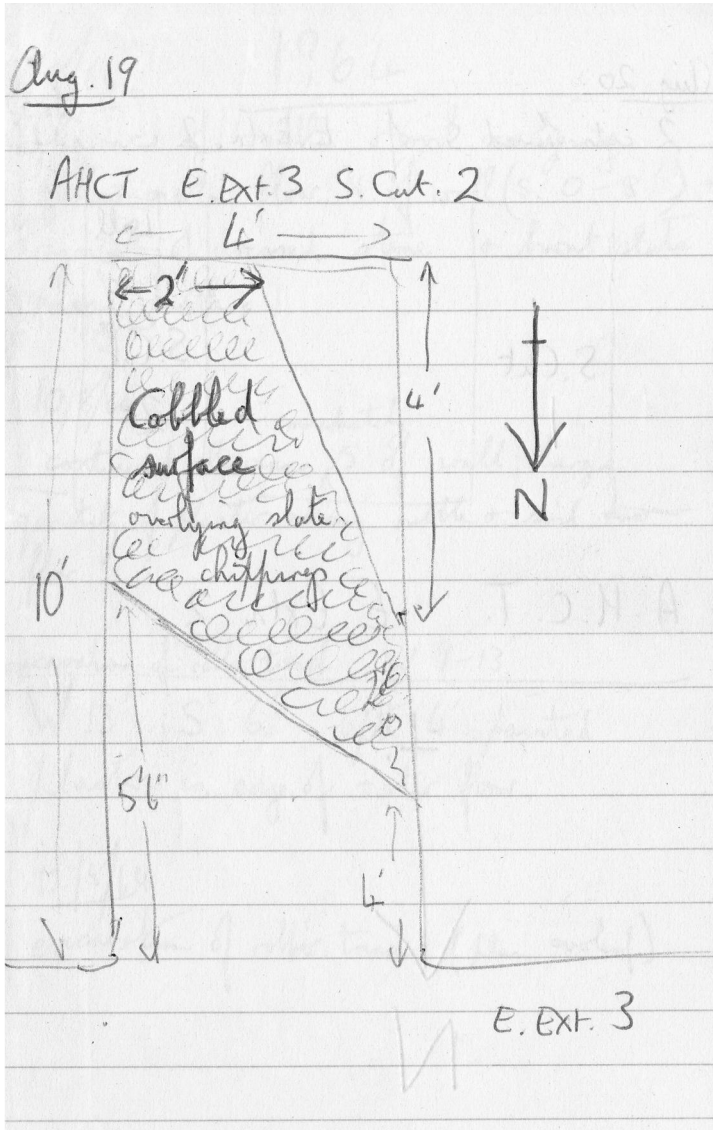 Aug. 19
AHCT E. Ext. 3 S. Cut. 2
4'
2'
4'
Cobbled
surface
overlying slate
chippings
N
10'
5'6"
4'
E. Ext. 3